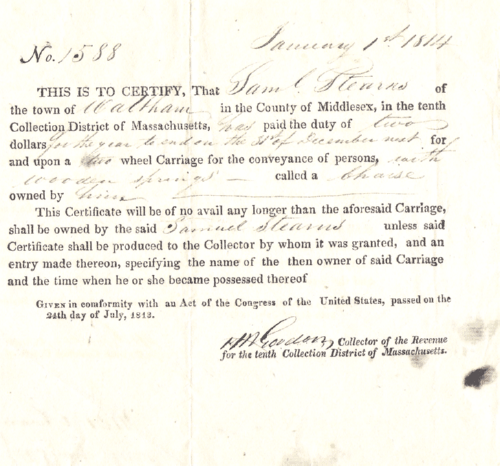 No. 1588
January 1st 1814
THIS IS TO CERTIFY, That Saml Stearns of
the town of Waltham in the County of Middlesex, in the tenth
Collection District of Massachusetts, has paid the duty of two
dollars for the year to end on the 31st of December next for
and upon a two wheel Carriage for the conveyance of persons, with
wooden springs — called a Chaise
owned by him
This Certificate will be of no avail any longer than the aforesaid Carriage,
shall be owned by the said Samuel Stearns unless said
Certificate shall be produced to the Collector by whom it was granted, and an
entry made thereon, specifying the name of the then owner of said Carriage
and the time when he or she became possessed thereof
GIVEN in comformity with an Act of the Congress of the United States, passed on the
24th day of July, 1813.
Collector of the Revenue
for the tenth Collection District of Massachusetts.